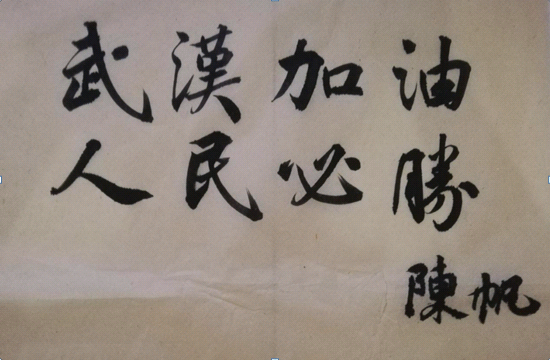 武漢加油
人民必勝
陳帆